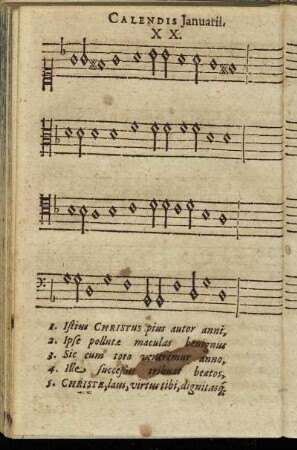 CALENDIS Januarii.
X X.
1. Istius CHRISTUS pius autor anni,
2. Ipse pollutæ maculas benignus
3. Sic eum toto veneremur anno,
4. Ille successus tribuat beatos,
5. CHRISTE, laus, virtus tibi, dignitasq́;